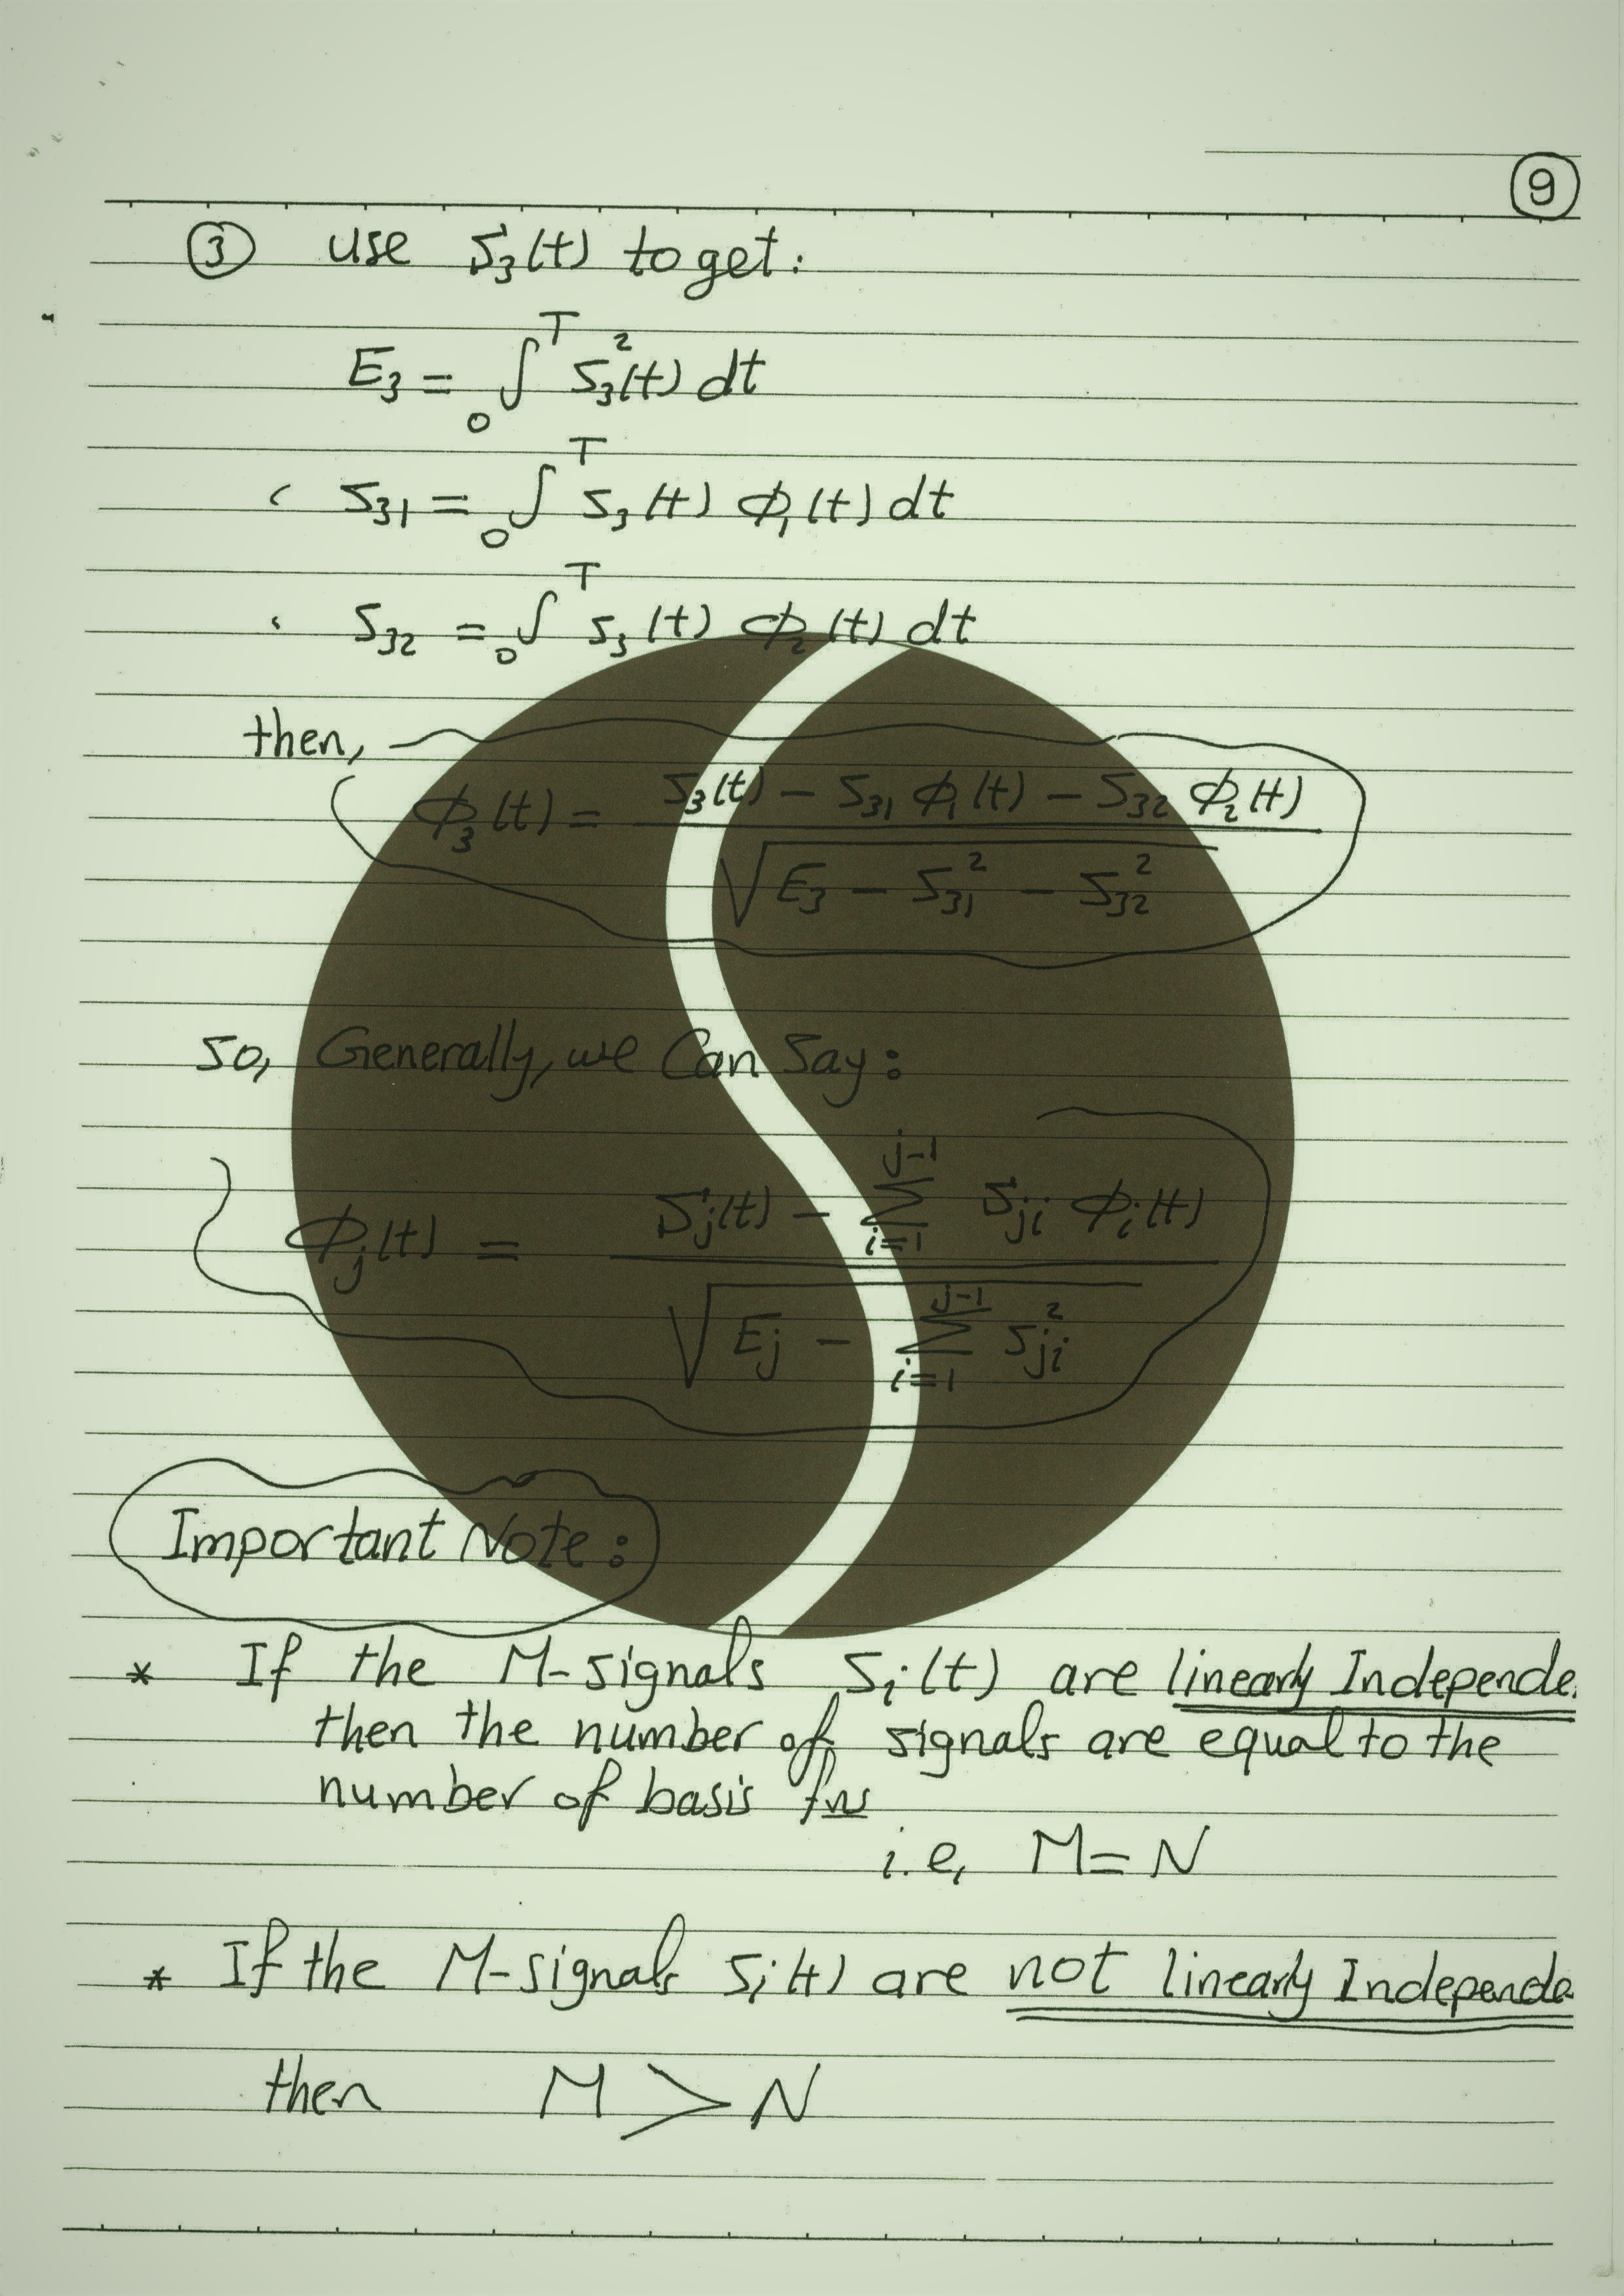 9
3 use S3(t) to get:
E3 = 0∫T S3²(t) dt
، S31 = 0∫T S3(t) Φ1(t) dt
، S32 = 0∫T S3(t) Φ2(t) dt
then,
Φ3(t) = (S3(t) - S31 Φ1(t) - S32 Φ2(t)) / √(E3 - S31² - S32²)
So, Generally, we Can Say:
Φj(t) = (Sj(t) - Σ_{i=1}^{j-1} Sji Φi(t)) / √(Ej - Σ_{i=1}^{j-1} Sji²)
Important Note:
* If the M-signals Si(t) are linearly Independe
then the number of signals are equal to the
number of basis fns
i.e, M=N
* If the M-signals Si(t) are not linearly Independe
then M > N